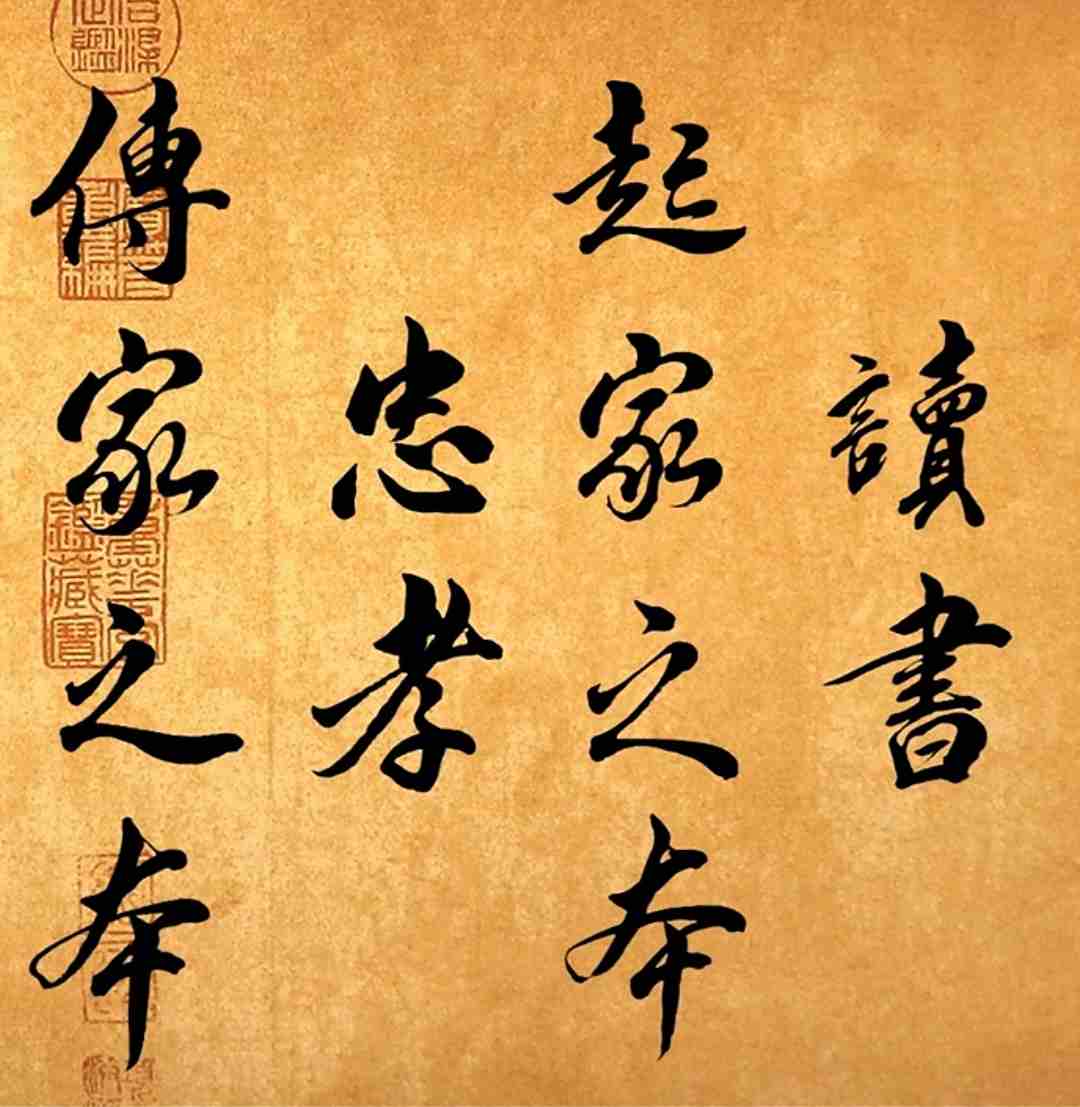 讀書
起家之本
忠孝
傳家之本